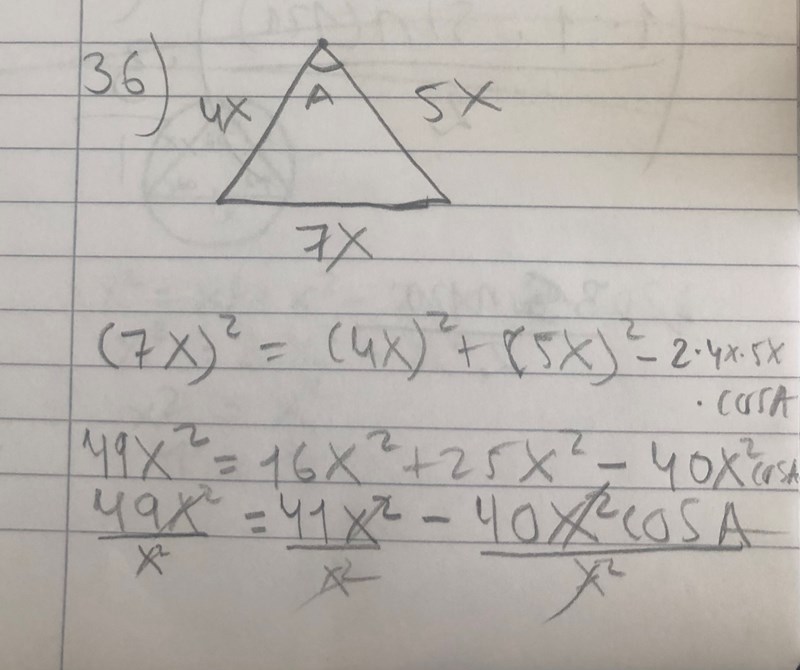 36)
4x
A
5x
7x
(7x)² = (4x)² + (5x)² - 2·4x·5x
· cosA
49x² = 16x² + 25x² - 40x² cosA
49x² = 41x² - 40x² cosA
x² x² x²